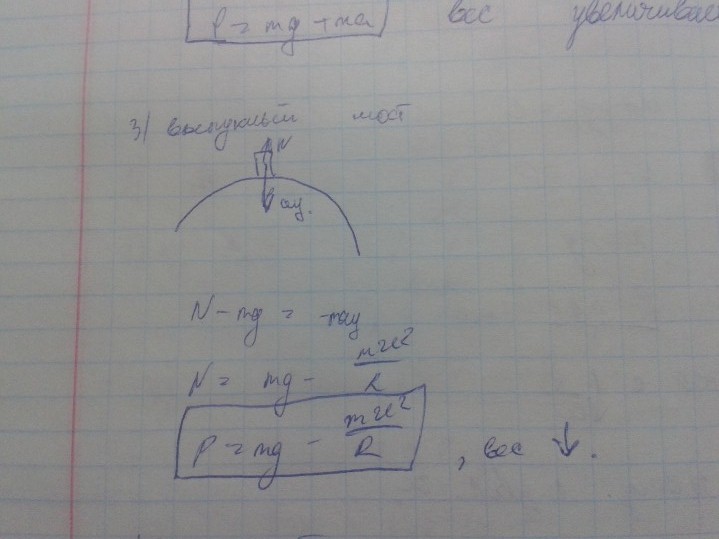 P = mg + ma вес увеличивае
3) выпуклый мост
N
aц.
N - mg = -maц
N = mg - mυ²/R
P = mg - mυ²/R , вес ↓.